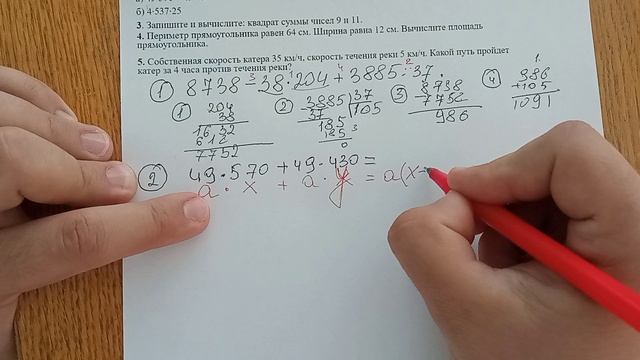 б) 4·537·25
3. Запишите и вычислите: квадрат суммы чисел 9 и 11.
4. Периметр прямоугольника равен 64 см. Ширина равна 12 см. Вычислите площадь
прямоугольника.
5. Собственная скорость катера 35 км/ч, скорость течения реки 5 км/ч. Какой путь пройдет
катер за 4 часа против течения реки?
3 1 4 2
① 8738 - 38·204 + 3885:37.
① 204 ② 3885 37 ③ 8738 ④ 986
38 37 105 7752 +105
1632 185 986 1091
612 185
7752 0
② 49·570 + 49·430 =
a · x + a · y = a(x